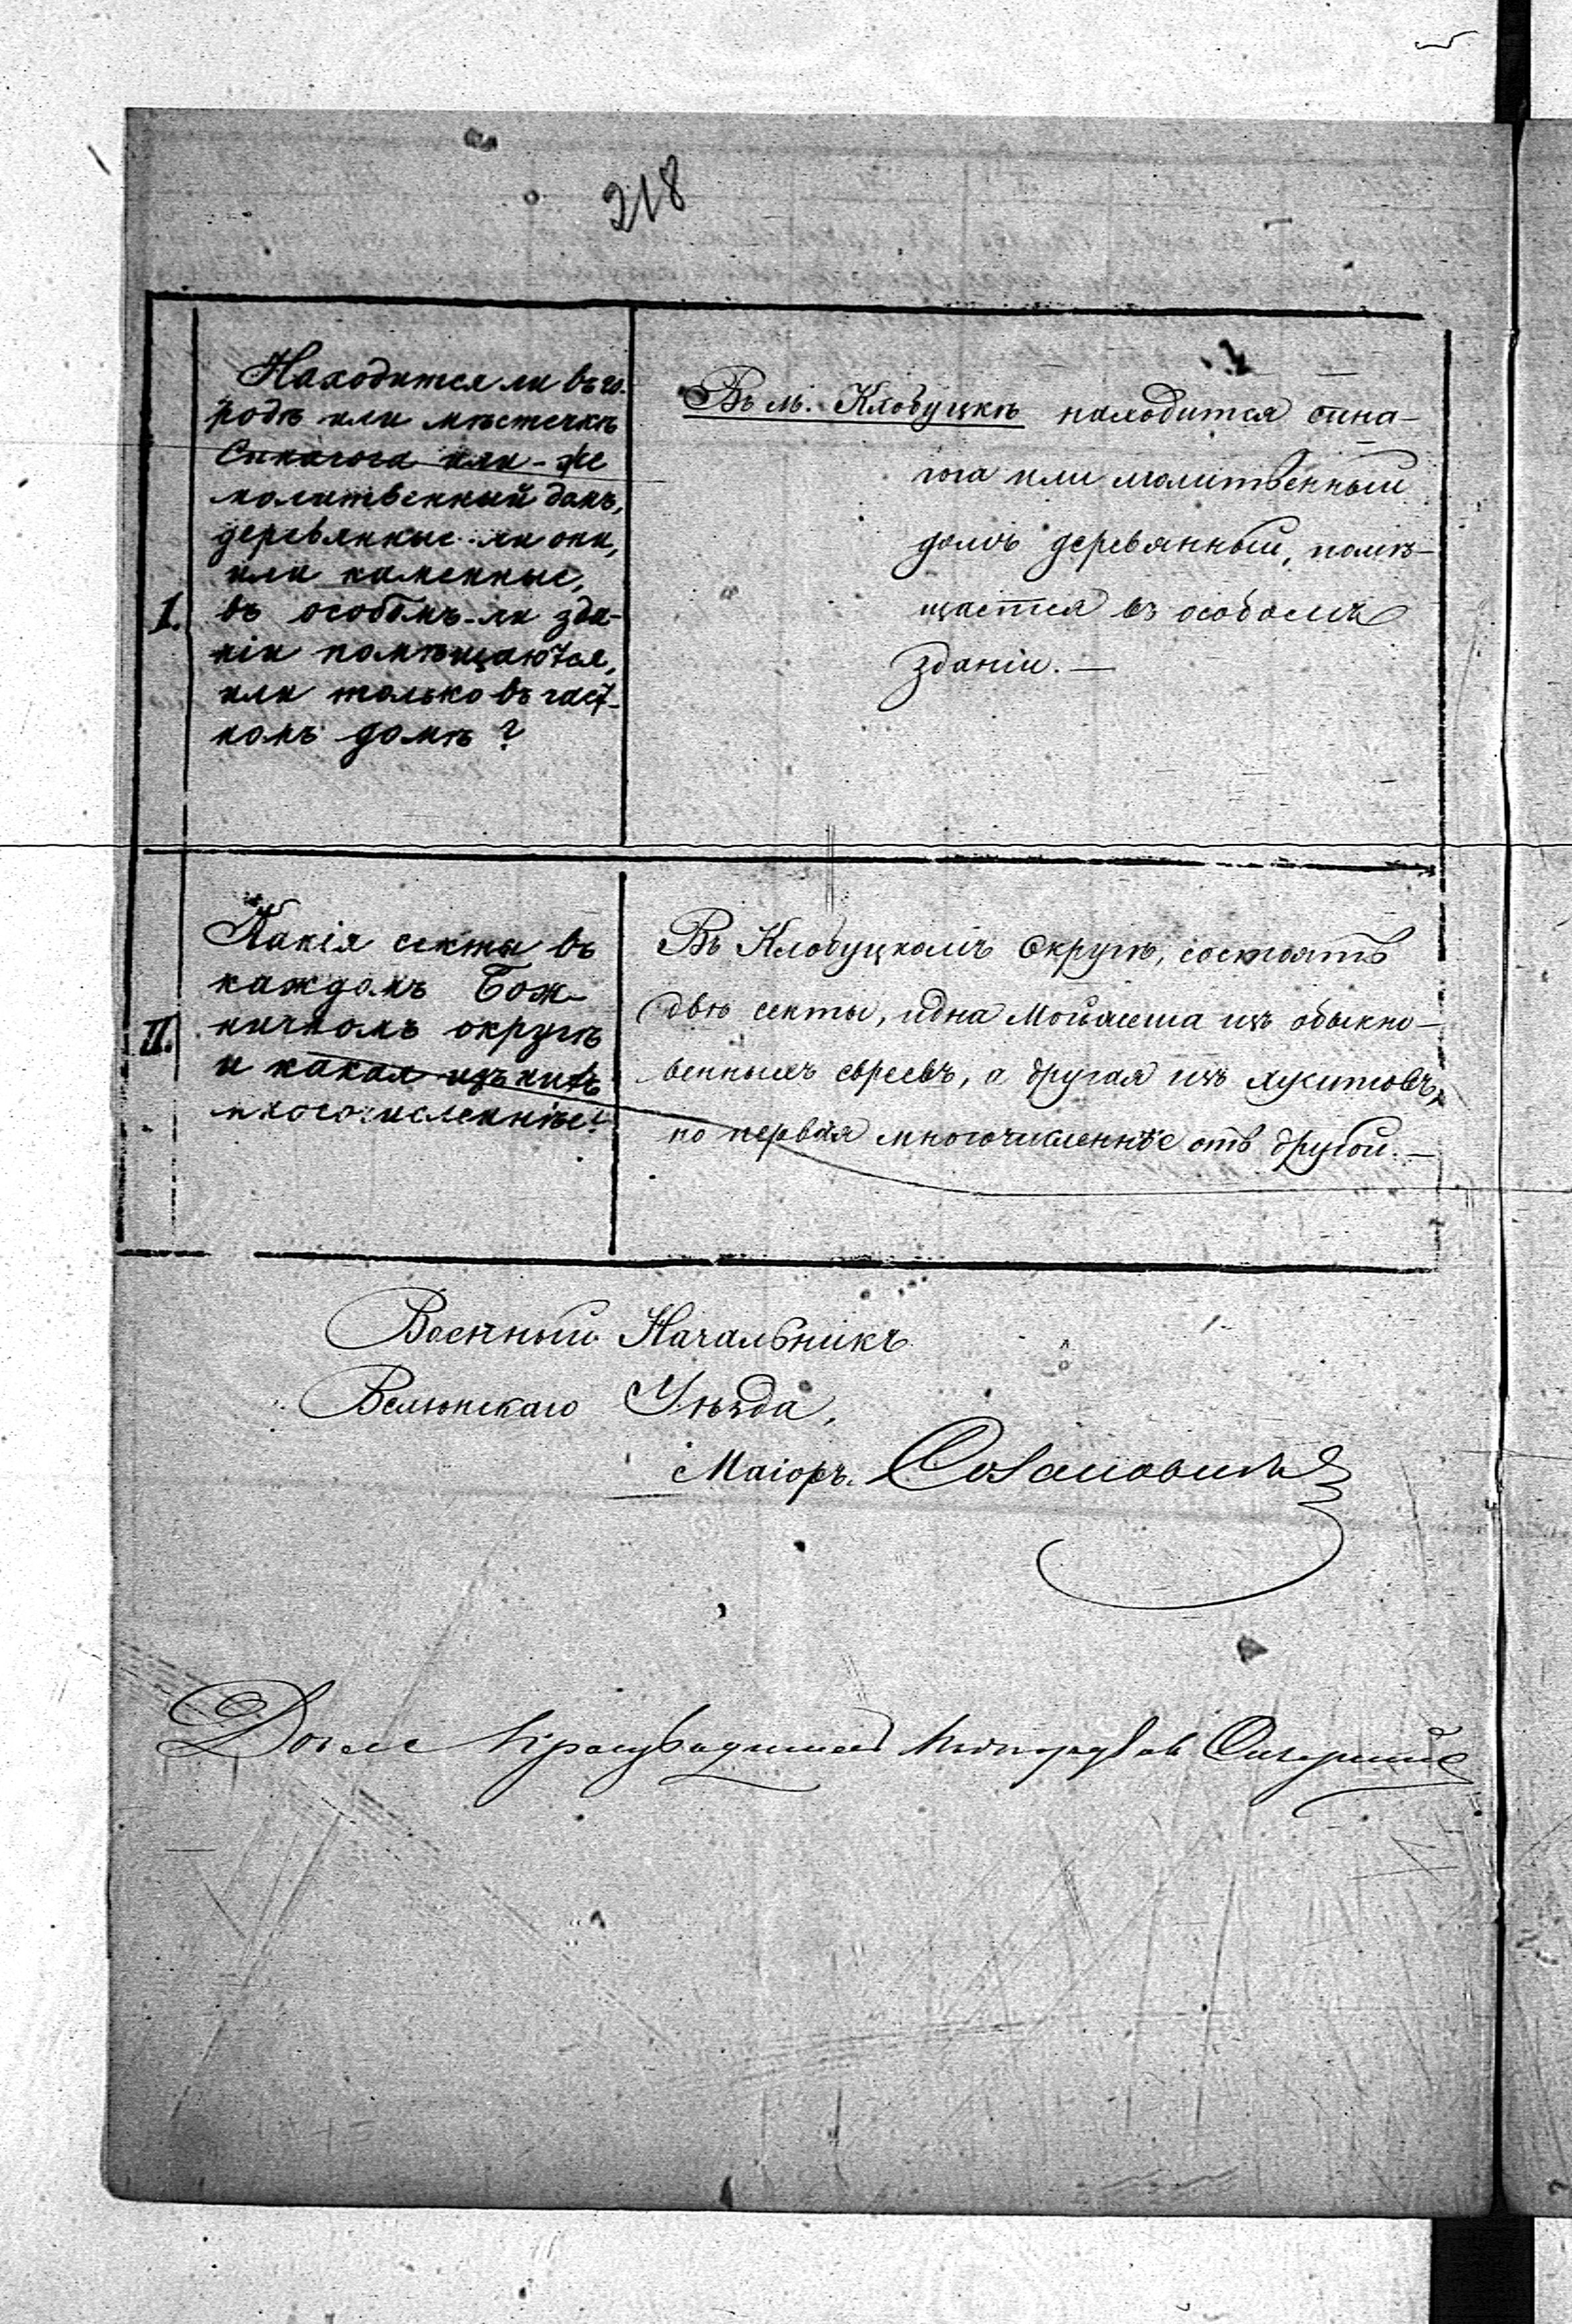 218
I.
Находится ли въ го-
родѣ или мѣстечкѣ
Синагога или-же
молитвенный домъ,
деревянные-ли они,
или каменные,
въ особомъ-ли зда-
ніи помѣщаются,
или только въ част-
номъ домѣ?
Въ м. Клобуцкѣ находится сина-
гога или молитвенный
домъ деревянный, помѣ-
щается въ особомъ
зданіи. —
II.
Какія секты въ
каждомъ Бож-
ничномъ округѣ
и какая изъ нихъ
многочисленнѣе?
Въ Клобуцкомъ Округѣ, состоятъ
двѣ секты, одна Мойжеша изъ обыкно-
венныхъ евреевъ, а другая изъ хуситовъ,
но первая многочисленнѣе отъ другой. —
Военный Начальникъ
Велюнскаго Уѣзда,
Маіоръ.